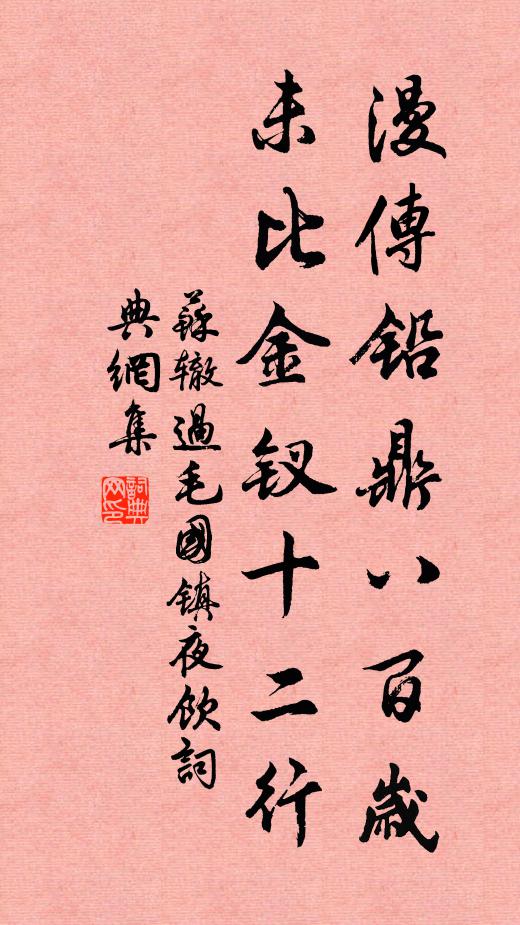 漫傳鉛鼎八百歲
未比金釵十二行
蘇轍過毛國鎮夜飲詞
典網集
詞典網印